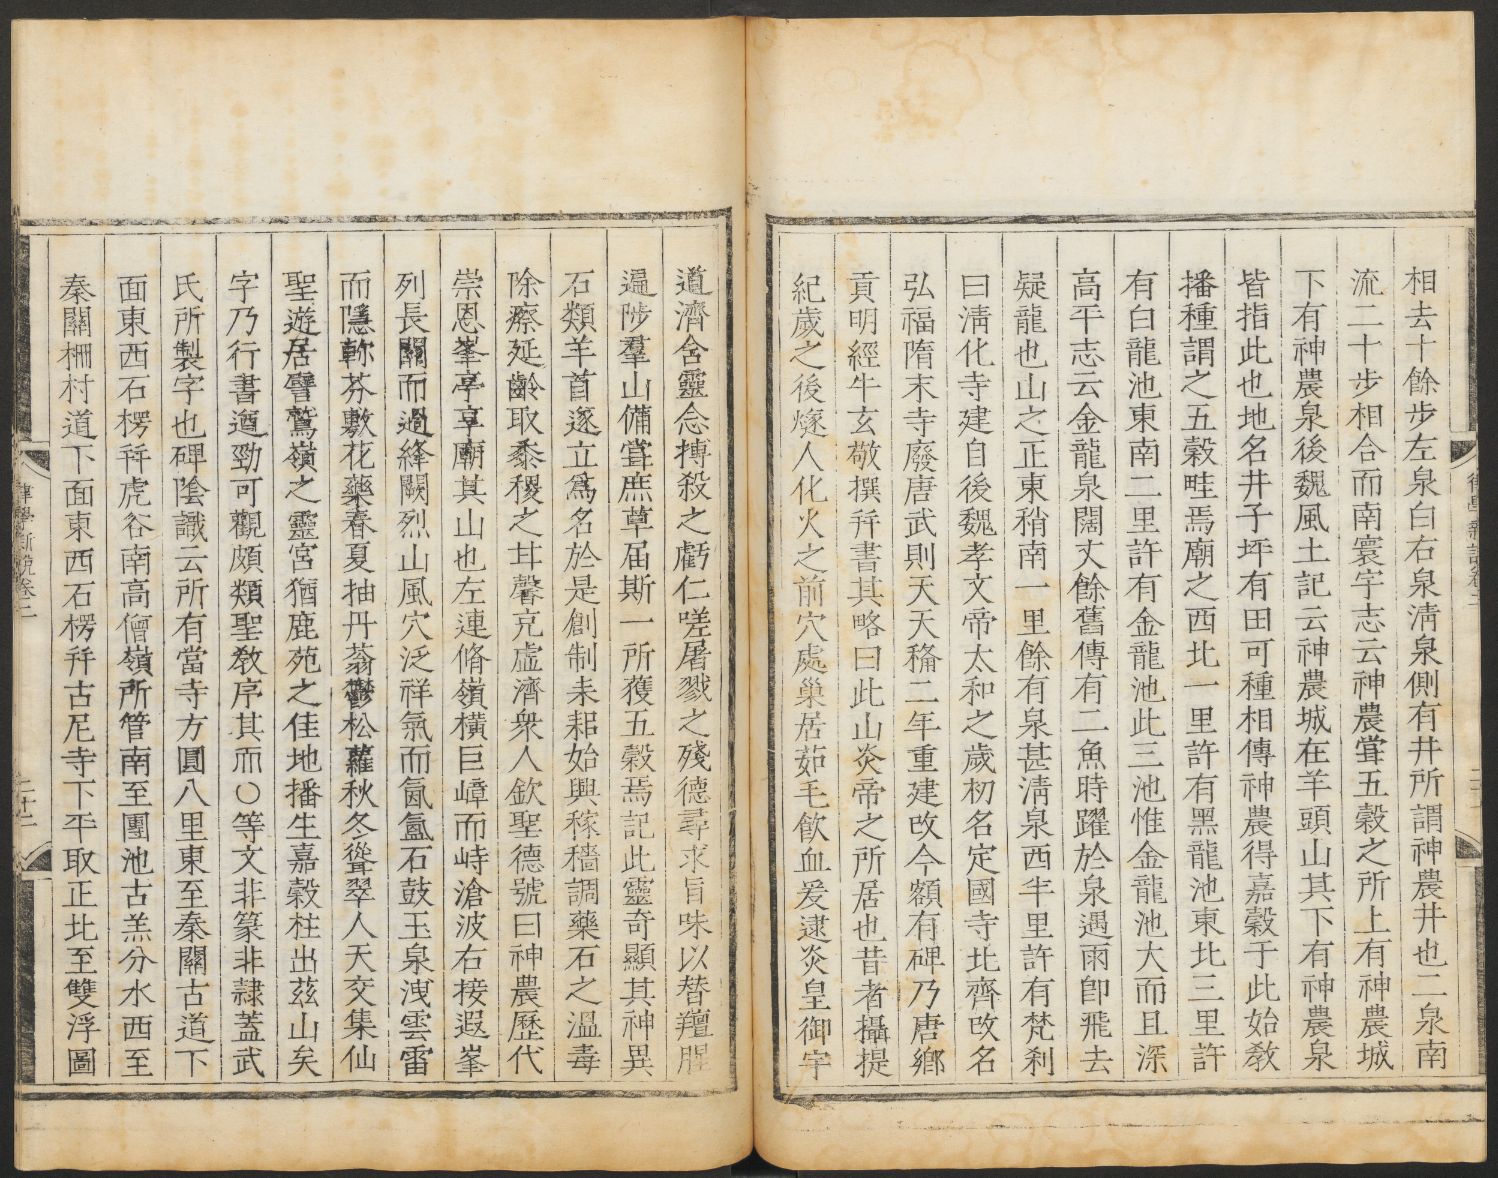 相去十餘步左泉白右泉淸泉側有井所謂神農井也二泉南
流二十步相合而南寰宇志云神農甞五穀之所上有神農城
下有神農泉後魏風土記云神農城在羊頭山其下有神農泉
皆指此也地名井子坪有田可種相傳神農得嘉穀于此始敎
播種謂之五穀畦焉廟之西北一里許有黑龍池東北三里許
有白龍池東南二里許有金龍池此三池惟金龍池大而且深
高平志云金龍泉闊丈餘舊傳有二魚時躍於泉遇雨卽飛去
疑龍也山之正東稍南一里餘有泉甚淸泉西半里許有梵刹
曰淸化寺建自後魏孝文帝太和之歲初名定國寺北齊改名
弘福隋末寺廢唐武則天天稱二年重建改今額有碑乃唐鄉
貢明經牛玄敬撰幷書其略曰此山炎帝之所居也昔者攝提
紀歲之後燧人化火之前穴處巢居茹毛飮血爰逮炎皇御宇
道濟含靈念搏殺之虧仁嗟屠戮之殘德尋求旨味以替羶腥
遍陟羣山備甞庶草届斯一所獲五穀焉記此靈奇顯其神異
石類羊首遂立爲名於是創制耒耜始興稼穡調藥石之溫毒
除瘵延齡取黍稷之甘馨充虛濟衆人欽聖德號曰神農歷代
崇恩峯亭享廟其山也左連脩嶺橫巨嶂而峙滄波右接遐峯
列長關而過絳闕烈山風穴泛祥氣而氤氳石鼓玉泉洩雲雷
而隱軫芬敷花藥春夏抽丹蓊鬱松蘿秋冬聳翠人天交集仙
聖遊居譬鷲嶺之靈宮猶鹿苑之佳地播生嘉穀柱出茲山矣
字乃行書遒勁可觀頗類聖敎序其而〇等文非篆非隷蓋武
氏所製字也碑陰識云所有當寺方圓八里東至秦關古道下
面東西石楞幷虎谷南高僧嶺所管南至團池古羔分水西至
秦關柵村道下面東西石楞幷古尼寺下平取正北至雙浮圖
律學新說卷二
二十二